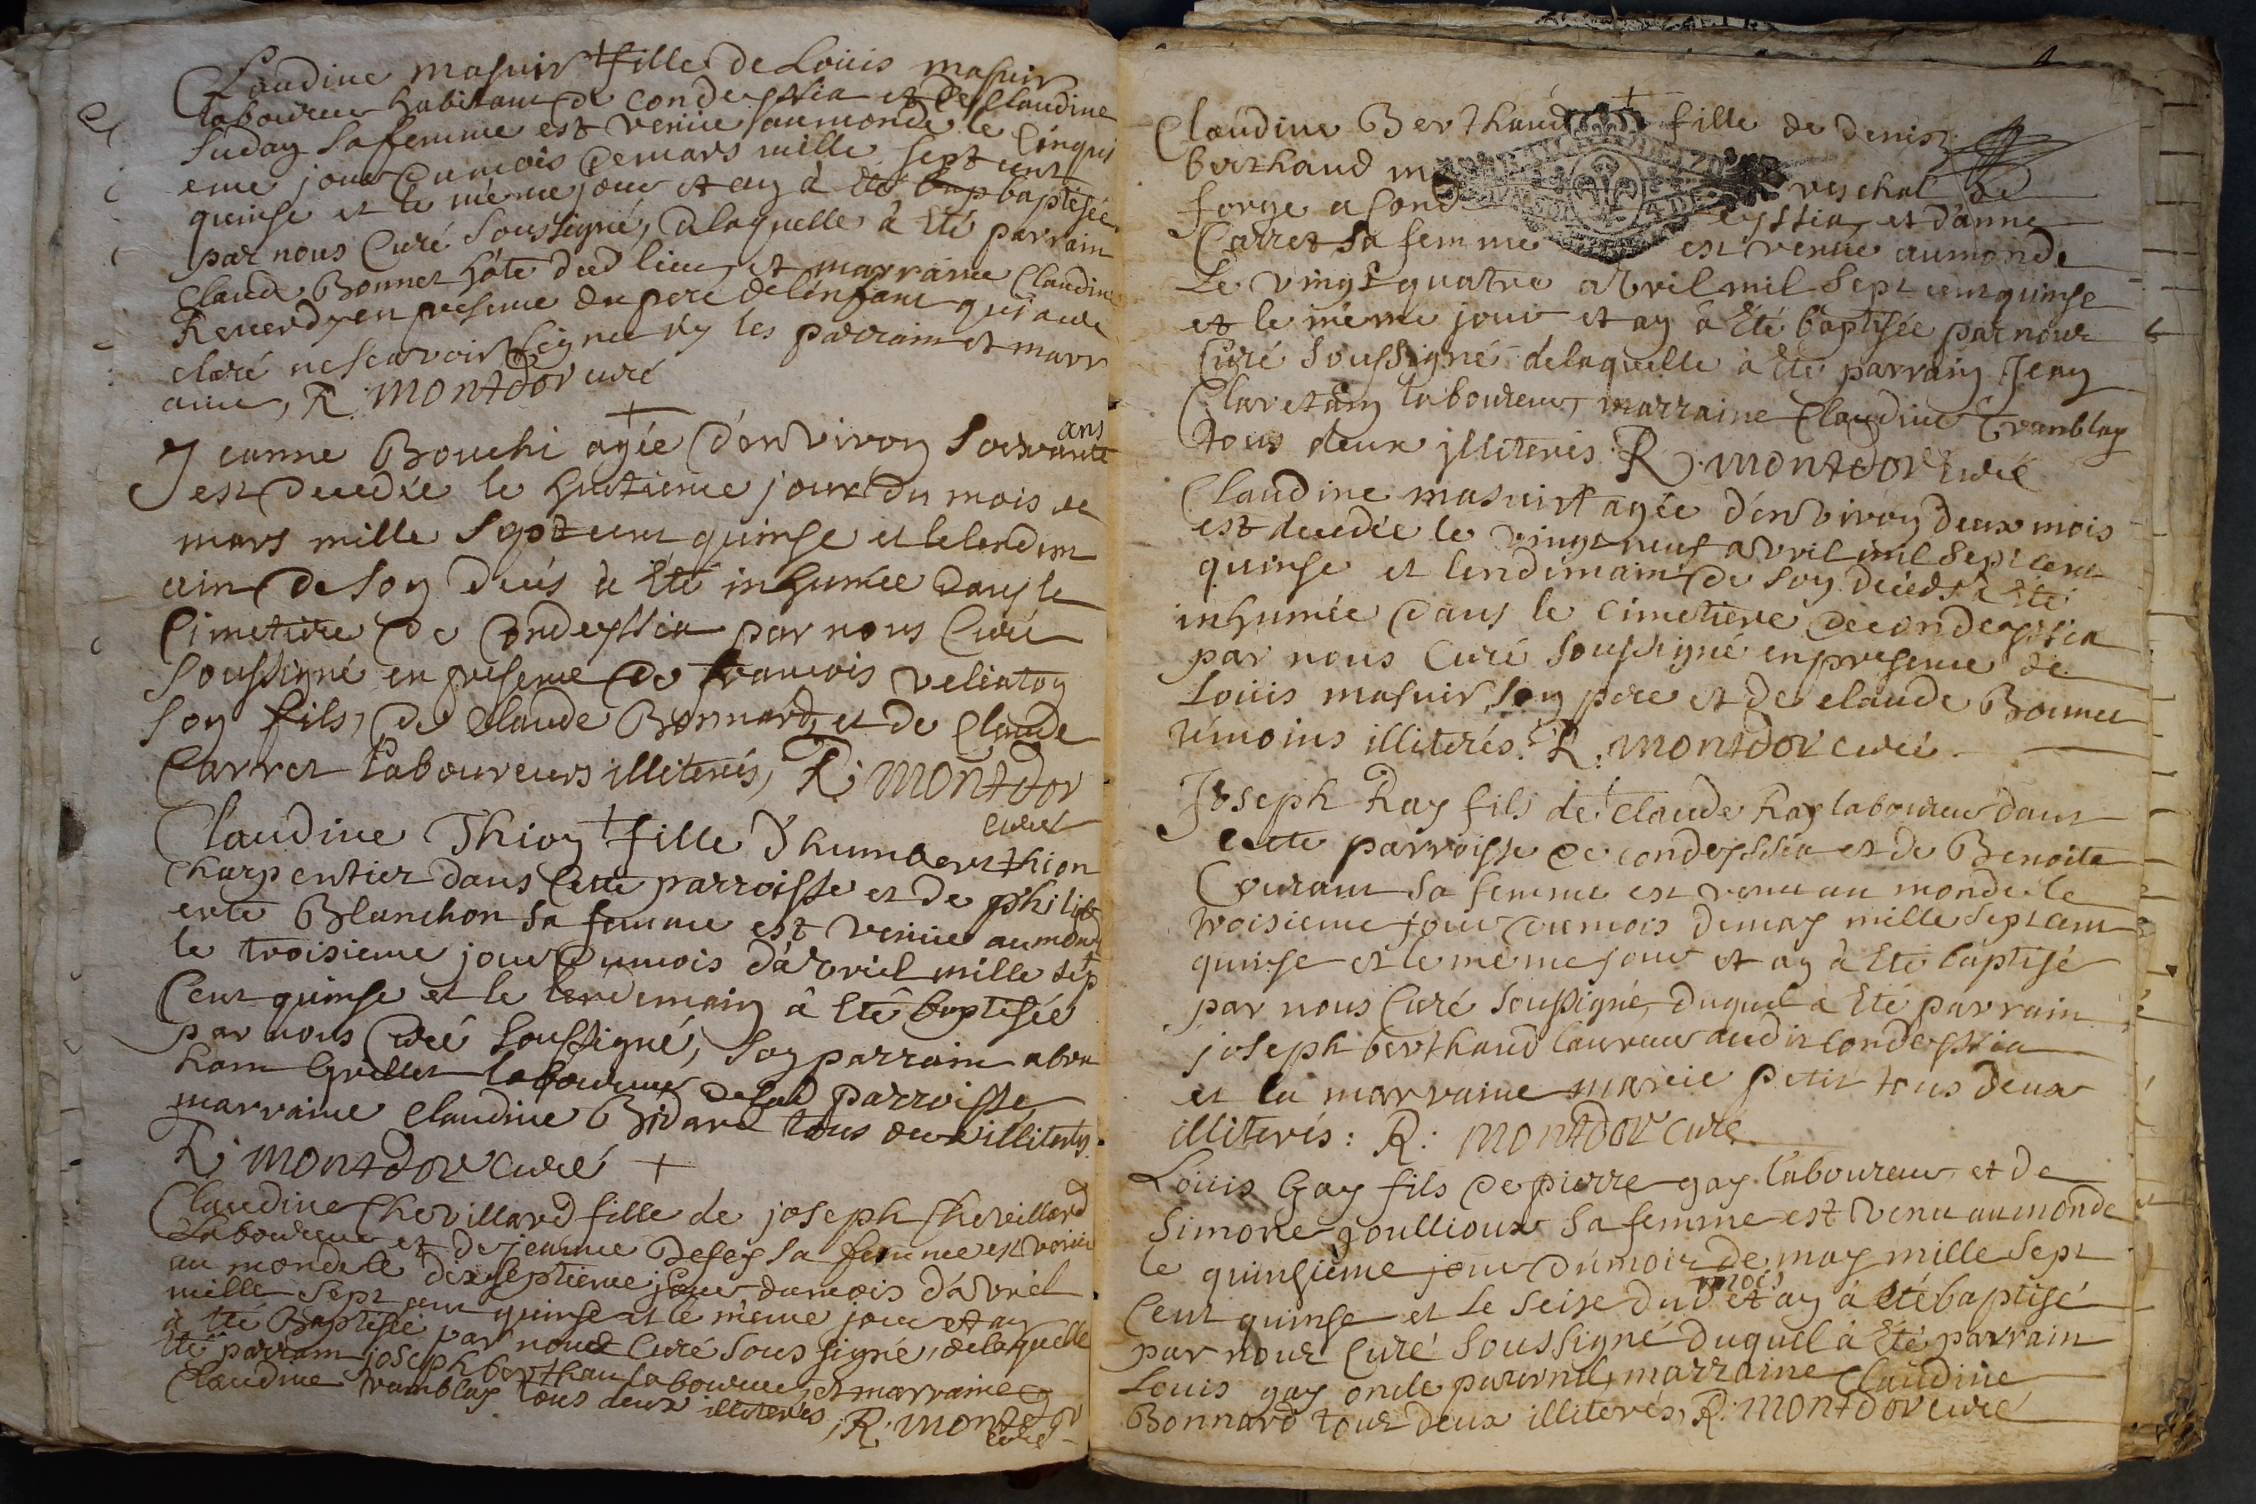 Claudine masuir fille de Loüis masuir
laboureur habitant de condeyssia et de Claudine
suday sa femme est venüe au monde le cinqui
eme jour du mois de mars mille sept cent
quinse et le même jour et an à été bap baptisée
par nous Curé soussigné, a laquelle à Eté parrain
Claude Bonnet hôte dud lieu, et marraine Claudine
Reverdy en presence du pere de l'enfant qui a dé
claré ne scavoir signer ny les parrain et marr
aine, R: montdor curé
Jeanne Bouchi agée d'environ soixante ans
est decedée le huitieme jour du mois de
mars mille sept cent quinse et le lendem
ain de son decés à Eté inhumée dans le
Cimetiere de Condeyssia par nous Curé
soussigné en presence de francois veliaton
son fils, de Claude Bonnard, et de Claude
Carret laboureurs illiterés, R: montdor
curé
Claudine Thion fille d'humbert thion
charpentier dans Cette parroisse et de philib
erte Blanchon sa femme est venüe au monde
le troisieme jour du mois d'avriel mille sep
Cent quinse et le lendemain à Eté baptisée
par nous Curé soussigné, son parrain abra
ham Grillet laboureur de lad parroisse
marraine Claudine Bidard tous deux illiterés.
R: montdor curé
Claudine Chevillard fille de joseph Chevillard
Laboureur et de jeanne Desey sa femme est venüe
au monde le dixseptieme jour du mois d'avriel
mille sept cent quinse et le même jour et an
à Eté Baptisée par nous Curé soussigné, de laquelle
Eté parrain joseph berthau laboureur, et marraine
Claudine tramblay tous deux illiterés, R: montdor
curé
Claudine Berthaud fille de denis
berthaud mareschal de
forge a Condeyssia, et d'anne
Carret sa femme est venüe au monde
Le vingt quatre avril mil sept cent quinse
et le même jour et an à Eté baptisée par nous
Curé soussigné de laquelle à Eté parrain Jean
Claretain laboureur, marraine Claudine Tramblay
tous deux illiterés R: montdor curé
Claudine masuir agée d'environ deux mois
est decedée le vingt neuf avril mil sept cent
quinse et lendemain de son decéds à Eté
inhumée dans le Cimetiere de condeyssia
par nous Curé soussigné en presence de
Loüis masuir son pere et de claude Bonnet
témoins illiterés. R: montdor curé.
Joseph Ray fils de Claude Ray laboureur dans
Cette parroisse de condeyssia et de Benoite
Courant sa femme est venu au monde le
troisieme jour du mois de may mille sept cent
quinse et le même jour et an à Eté baptisé
par nous Curé soussigné, duquel à Eté parrain
joseph berthaud laureur audit Condeyssia
et la marraine marie petit tous deux
illiterés: R: montdor curé
Loüis Gay fils de pierre gay laboureur, et de
Simone goullioux sa femme est venu au monde
le quinsieme jour du mois de may mille sept
Cent quinse et le seise dud mois et an à été baptisé
par nous Curé soussigné duquel à Eté parrain
Louis gay oncle paternel, marraine Claudine
Bonnard tous deux illiterés, R: montdor curé